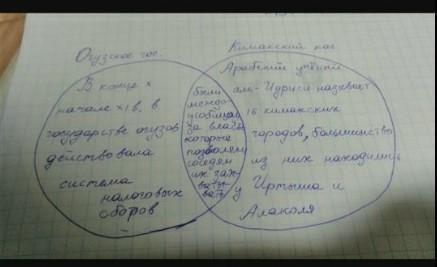 Огузское гос.
Кимакский каг.
В конце X
начале XI в, в
государстве огузов
действовала
система
налоговых
сборов
были
междо
усобицы
за власть
которые
позволяли
соседям
их зах-
ваты-
вать
Арабский учёный
ал-Идриси называет
16 кимакских
городов, большинство
из них находились
у Иртыша и
Алаколя